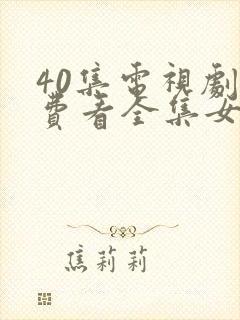 40集電視劇
費看全集女
焦莉莉